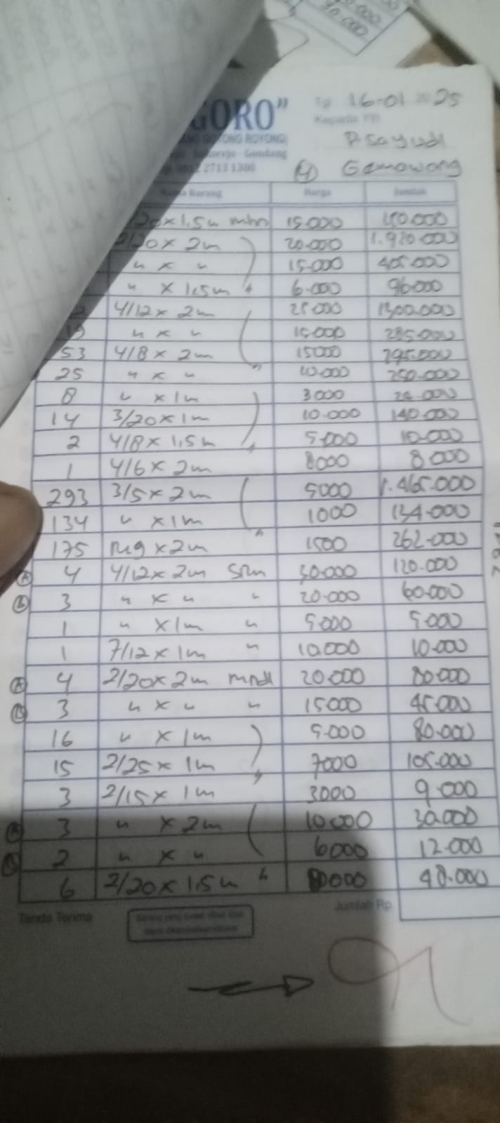 GORO"
Tgl. 16-01 2025
Kepada Yth
P Sayudi
Gemawang
2713 1300
Barang Harga Jumlah
/20 x 1,5m mhn 15.000 150.000
2/20 x 2m 20.000 1.920.000
" x " 15.000 405.000
" x 1,5m " 6.000 96.000
4/12 x 2m 25.000 1300.000
" x " 15.000 285.000
53 4/8 x 2m 15000 795.000
25 " x " " 10.000 250.000
8 " x 1m 3000 24.000
14 3/20 x 1m 10.000 140.000
2 4/8 x 1,5m 5.000 10.000
1 4/6 x 2m 8000 8.000
293 3/5 x 2m 5000 1.465.000
134 " x 1m 1000 134.000
175 x 2m " 1500 262.000
A 4 4/12 x 2m 30.000 120.000
B 3 " x " " 20.000 60.000
1 " x 1m " 5.000 5.000
1 7/12 x 1m " 10.000 10.000
A 4 2/20 x 2m mndi 20.000 80.000
B 3 " x " " 15000 45.000
16 " x 1m 5.000 80.000
15 2/25 x 1m 7000 105.000
3 2/15 x 1m " 3000 9.000
A 3 " x 2m 10.000 30.000
B 2 " x " 6000 12.000
6 2/20 x 1,5m " 8000 48.000
Tanda Terima
Jumlah Rp.